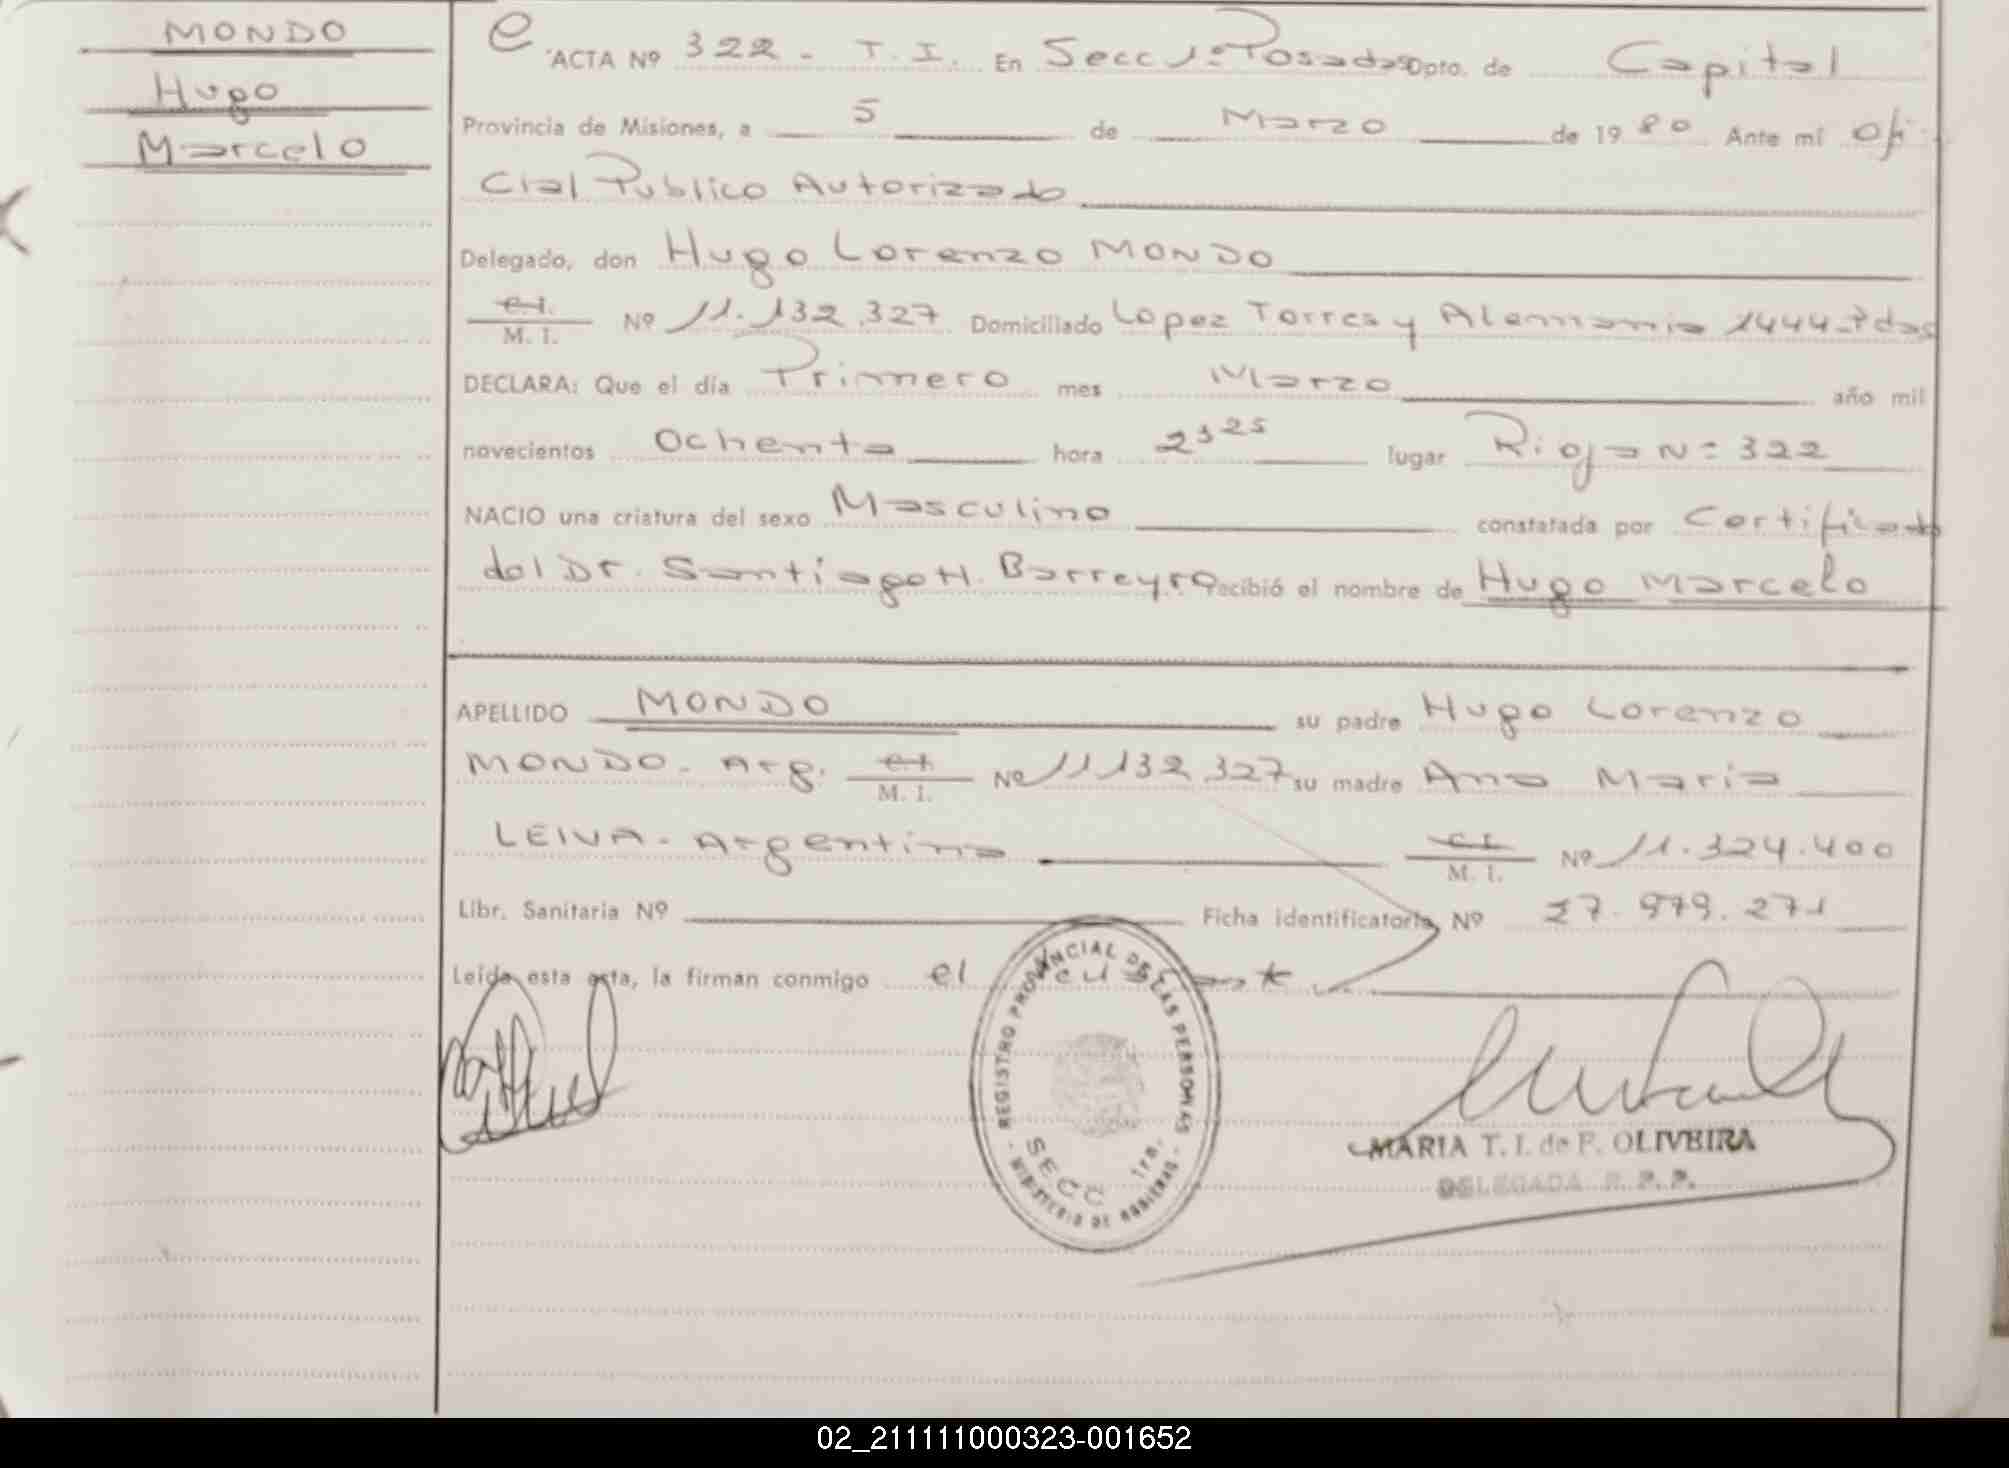 MONDO
Hugo
Marcelo
e
ACTA Nº 322 - T. I. En Secc 1º Posadas Dpto. de Capital
Provincia de Misiones, a 5 de Marzo de 1980 Ante mí Ofi
cial Publico Autorizado
Delegado, don Hugo Lorenzo MONDO
C.I.
M. I. Nº 11.132.327 Domiciliado Lopez Torres y Alemania 1444-Pdas
DECLARA: Que el día Primero mes Marzo año mil
novecientos Ochenta hora 23 25 lugar Rioja Nº 322
NACIO una criatura del sexo Masculino constatada por Certificado
del Dr. Santiago H. Barreyro recibió el nombre de Hugo Marcelo
APELLIDO MONDO su padre Hugo Lorenzo
MONDO - Arg. C.I.
M. I. Nº 11132.327 su madre Ana Maria
LEIVA - Argentina C.I.
M. I. Nº 11.324.400
Libr. Sanitaria Nº Ficha identificatoria Nº 27.979.271
Leída esta acta, la firman conmigo el
REGISTRO PROVINCIAL DE LAS PERSONAS
SECC 1ra.
- MINISTERIO DE GOBIERNO -
MARIA T. I. de F. OLIVEIRA
DELEGADA R. P. P.
02_211111000323-001652